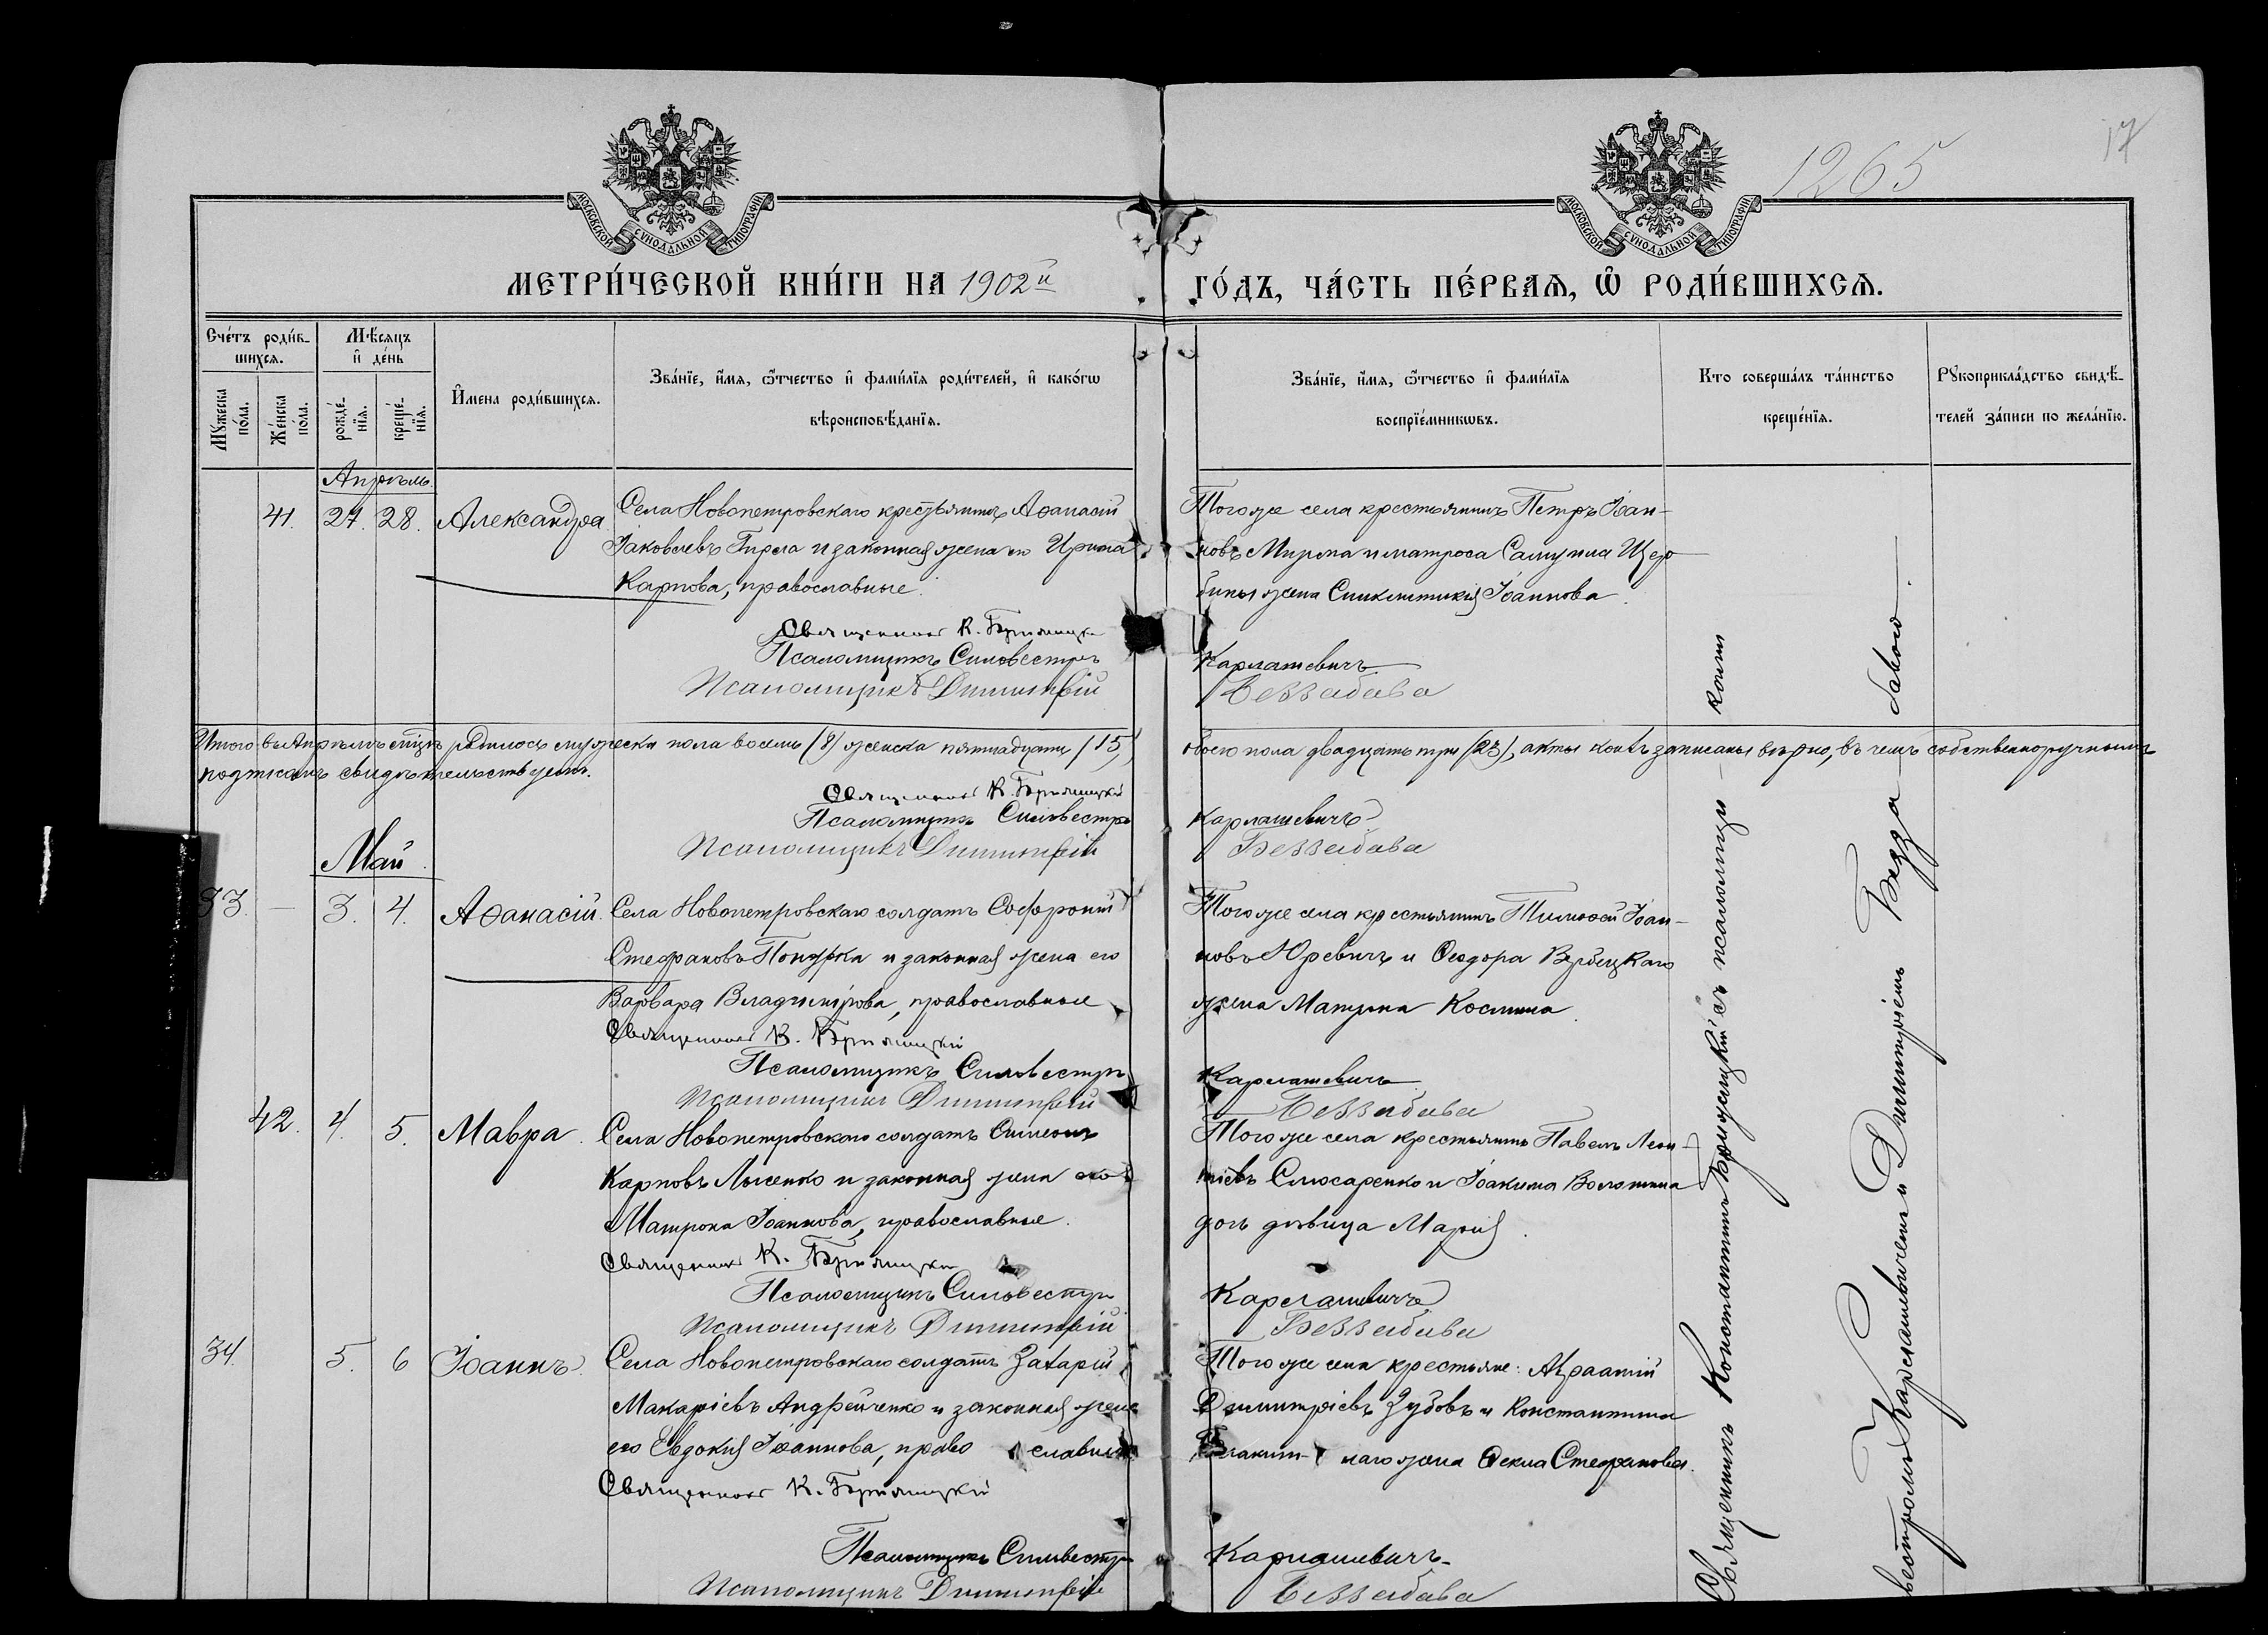 1265
17
МОСКОВСКОЙ СУНОДАЛЬНОЙ ТИПОГРАФІИ
МОСКОВСКОЙ СУНОДАЛЬНОЙ ТИПОГРАФІИ
МЕТРИ́ЧЕСКОЙ КНИ́ГИ НА 1902й
ГО́ДЪ, ЧА́СТЬ ПЕ́РВАѦ, Ѡ҆ РОДИ́ВШИХСѦ.
Сче́тъ роди́в-
шихсѧ.
Мꙋ́жеска по́ла.
Же́нска по́ла.
Мѣ́сѧцъ
и҆ де́нь
рожде́-
нїѧ.
креще́-
нїѧ.
И҆мена роди́вшихсѧ.
Зва́нїе, и҆́мѧ, ѻ҆́тчество и҆ фами́лїѧ роди́телей, и҆ како́гѡ
вѣроисповѣ́данїѧ.
Зва́нїе, и҆́мѧ, ѻ҆́тчество и҆ фами́лїѧ
воспрїе́мникѡвъ.
Кто соверша́лъ та́инство
креще́нїѧ.
Рꙋкоприкла́дство свидѣ́-
телей за́писи по жела́нїю.
Апрѣль.
41. 27. 28. Александра
Села Новопетровскаго крестьянинъ Аѳанасій
Іаковлевъ Гирла и законная жена его Ирина
Карпова, православные.
Священникъ К.
Псаломщикъ Силовестръ
Псаломщикъ Димитрій
Того же села крестьянинъ Петръ Іоан-
новъ Мирла и матроса Самуила Щер-
бины жена Синклитикія Іоаннова.
Карлашевичъ
Беззабава
Итого въ Апрѣлѣ мѣсяцѣ родилось мужеска пола восемь /8/ женска пятнадцать /15/,
обоего пола двадцать три /23/, акты коихъ записаны вѣрно, въ чемъ собственноручнымъ
подписомъ свидѣтельствуемъ.
Священникъ К.
Псаломщикъ Силовестръ
Псаломщикъ Димитрій
Карлашевичъ
Беззабава
Май.
33. — 3. 4. Аѳанасій.
Села Новопетровскаго солдатъ Софроній
Стефановъ Понурка и законная жена его
Варвара Владимірова, православные
Священникъ К.
Псаломщикъ Силовестръ
Псаломщикъ Димитрій
Того же села крестьянинъ Тимоѳей Іоан-
новъ Юревичъ и Ѳеодора Вербицкаго
жена Матрона Космина.
Карлашевичъ
Беззабава
42. 4. 5. Мавра.
Села Новопетровскаго солдатъ Симеонъ
Карповъ Лысенко и законная жена его
Матрона Іоаннова, православные.
Священникъ К.
Псаломщикъ Силовестръ
Псаломщикъ Димитрій
Того же села крестьянинъ Павелъ Леон-
тіевъ Слюсаренко и Іоакима Волошина
дочь дѣвица Марія.
Карлашевичъ
Беззабава
34. 5. 6 Іоаннъ.
Села Новопетровскаго солдатъ Захарій
Макаріевъ Андрейченко и законная жена
его Евдокія Іоаннова, православные
Священникъ К.
Псаломщикъ Силвестръ
Псаломщикъ Димитрій
Того же села крестьяне:
Димитріевъ Зубовъ и Константина
жена Ѳекла Стефанова.
Карлашевичъ
Беззабава
Священникъ Константинъ съ псаломщи- ками
вестромъ Карлашевичемъ и Димитріемъ Безза- бавою.